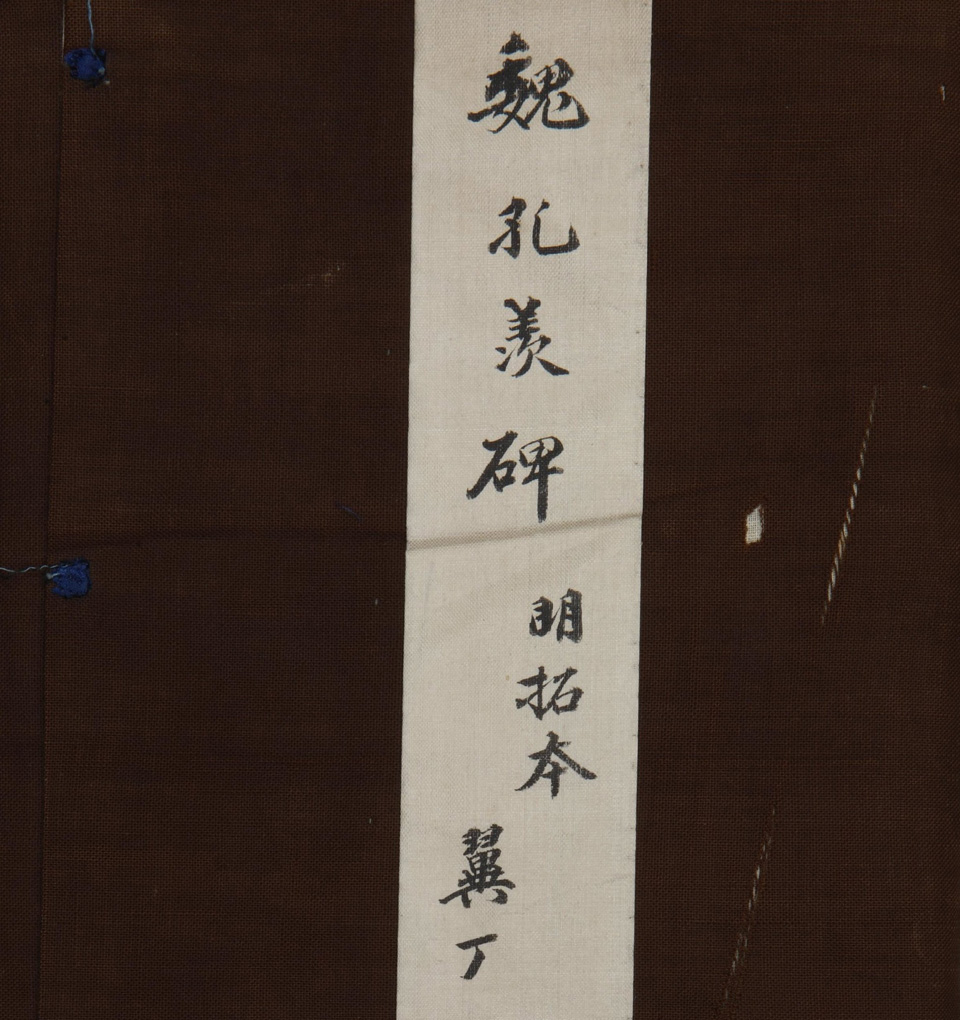 魏孔羨碑
明拓本
翼丁